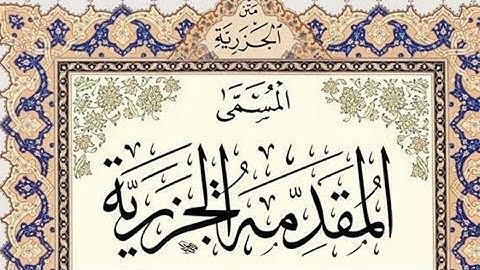 مَتْن
الجَزَرِيَّة
المُسَمَّىٰ
المُقَدِّمَة الجَزَرِيَّة